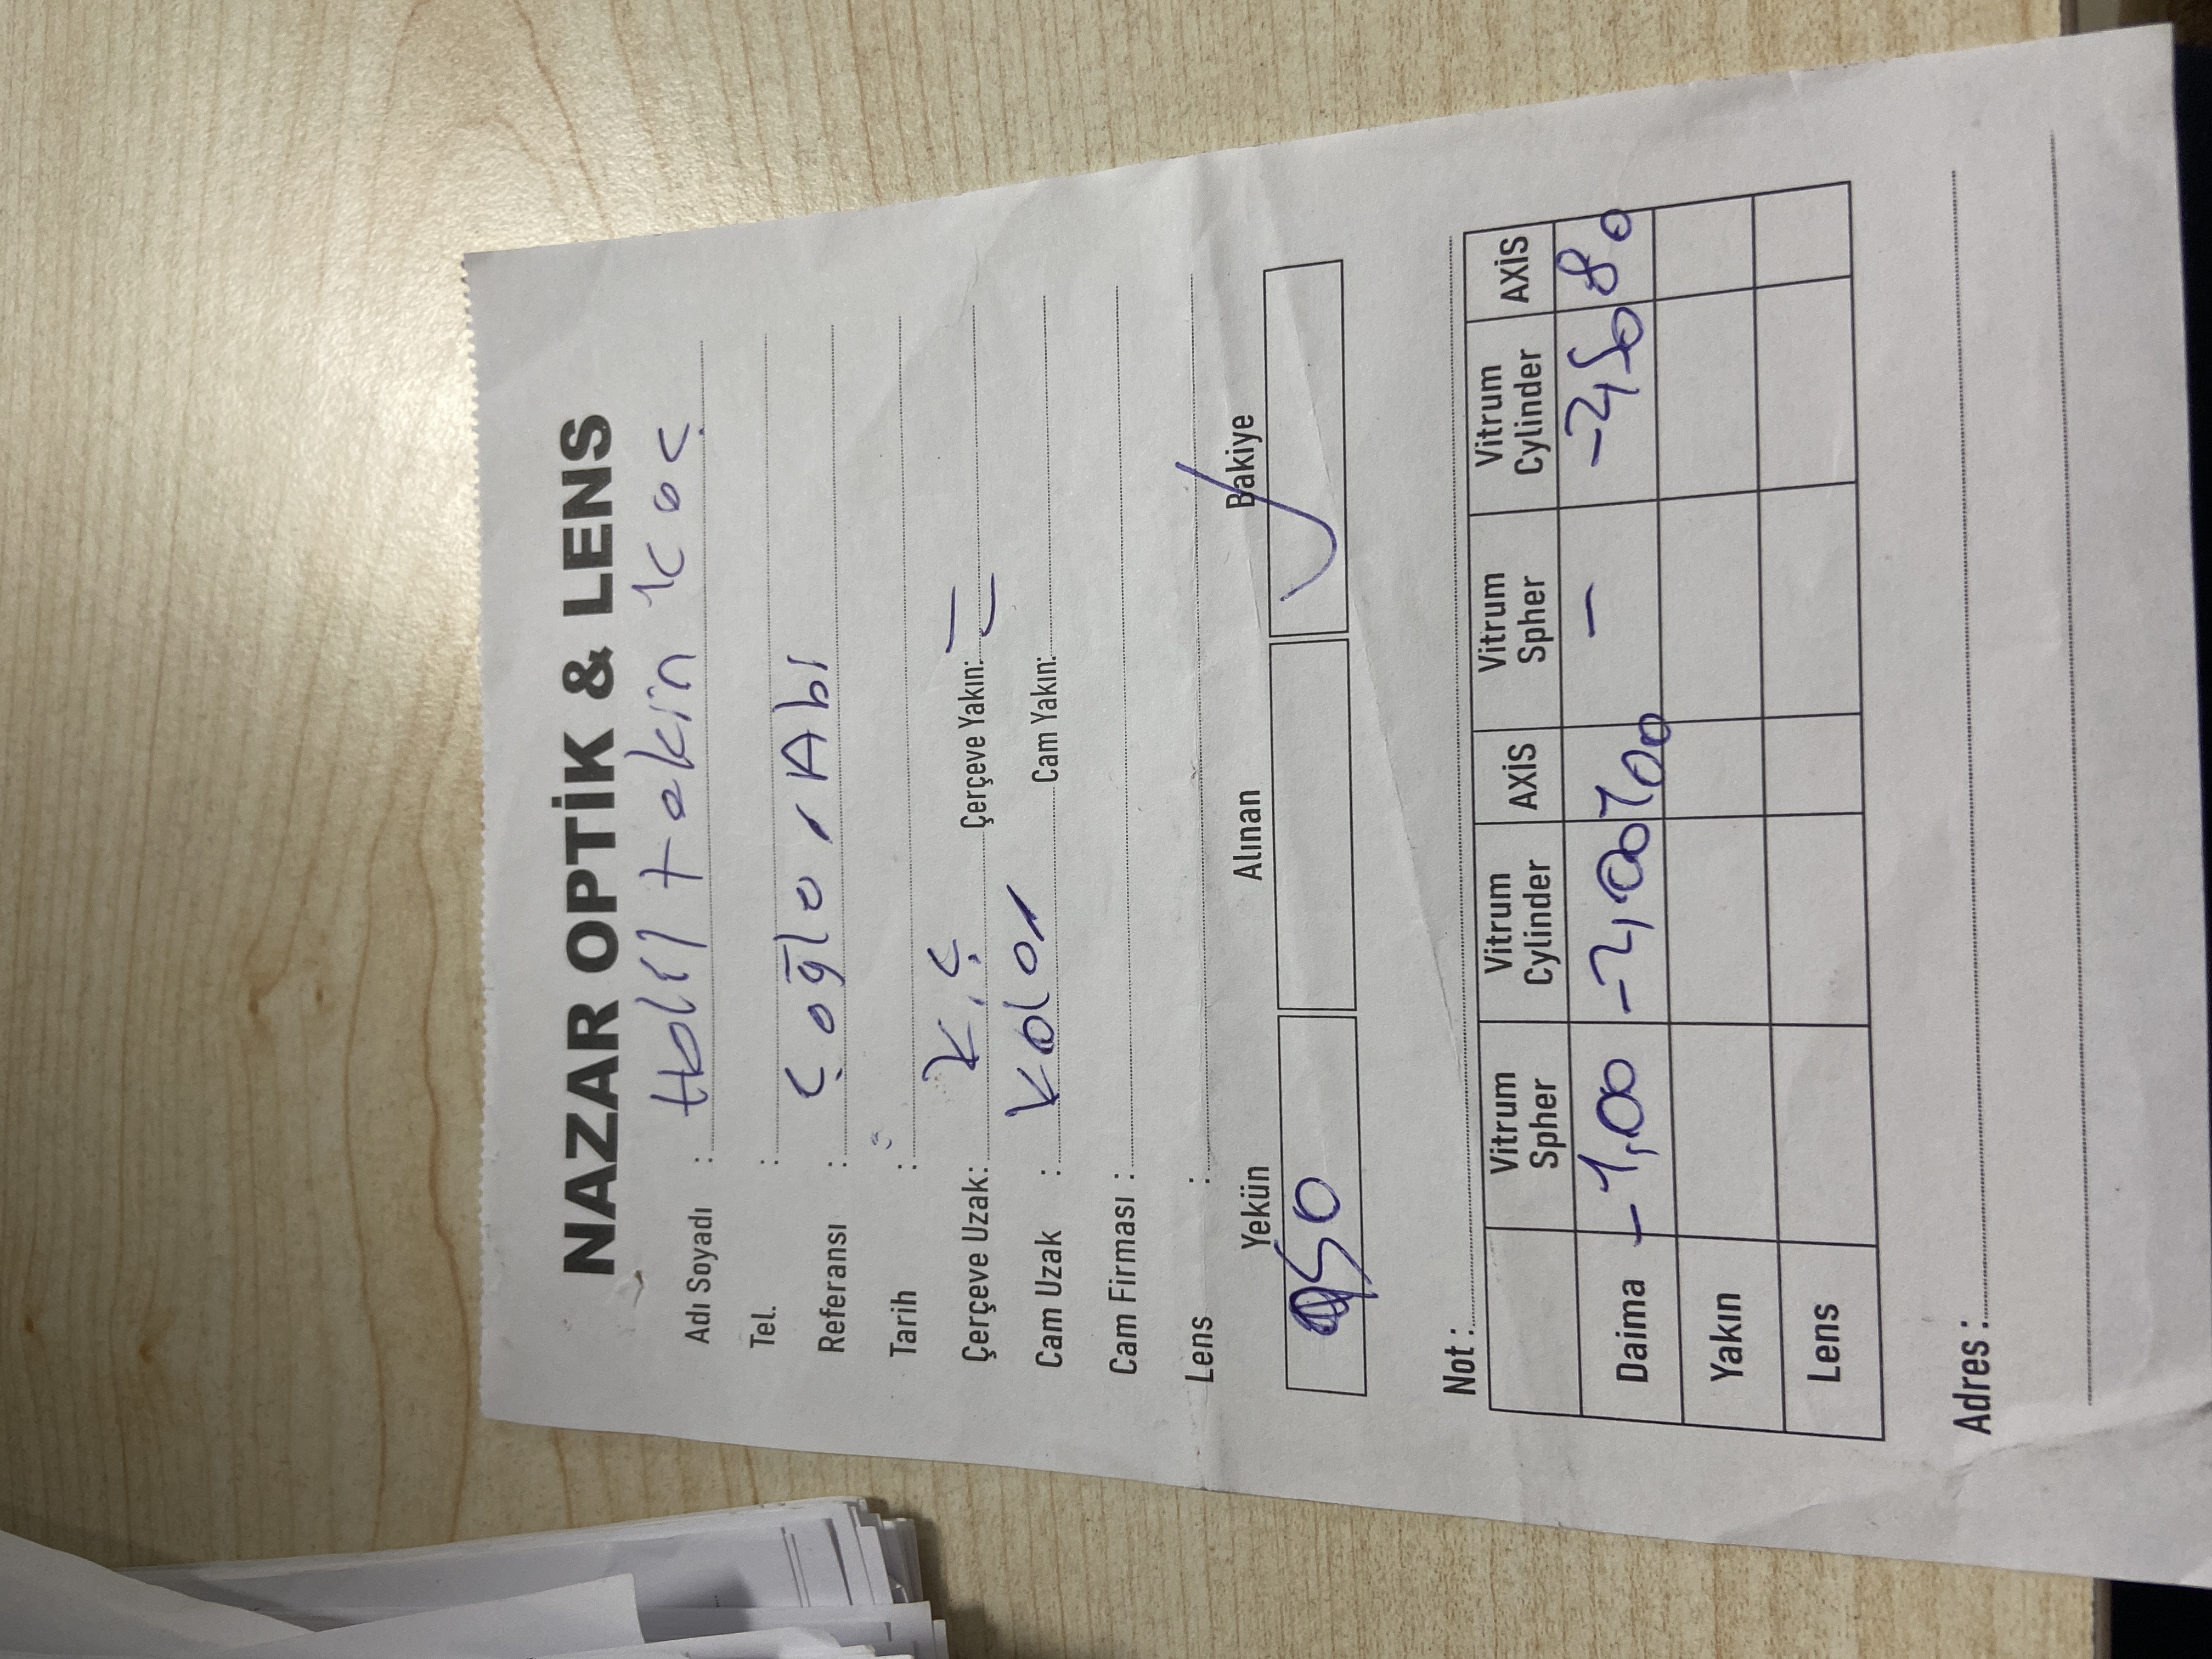 NAZAR OPTİK & LENS
Adı Soyadı : Halil tekin Koç
Tel. :
Referansı : Çağlar Abi
Tarih :
Çerçeve Uzak: K.Ç Çerçeve Yakın:
Cam Uzak : Kolor Cam Yakın:
Cam Firması :
Lens :
Yekün Alınan Bakiye
950 ✓
Not :
Vitrum Spher Vitrum Cylinder AXİS Vitrum Spher Vitrum Cylinder AXİS
Daima -1,00 -2,00 100 - -2,50 80
Yakın
Lens
Adres :